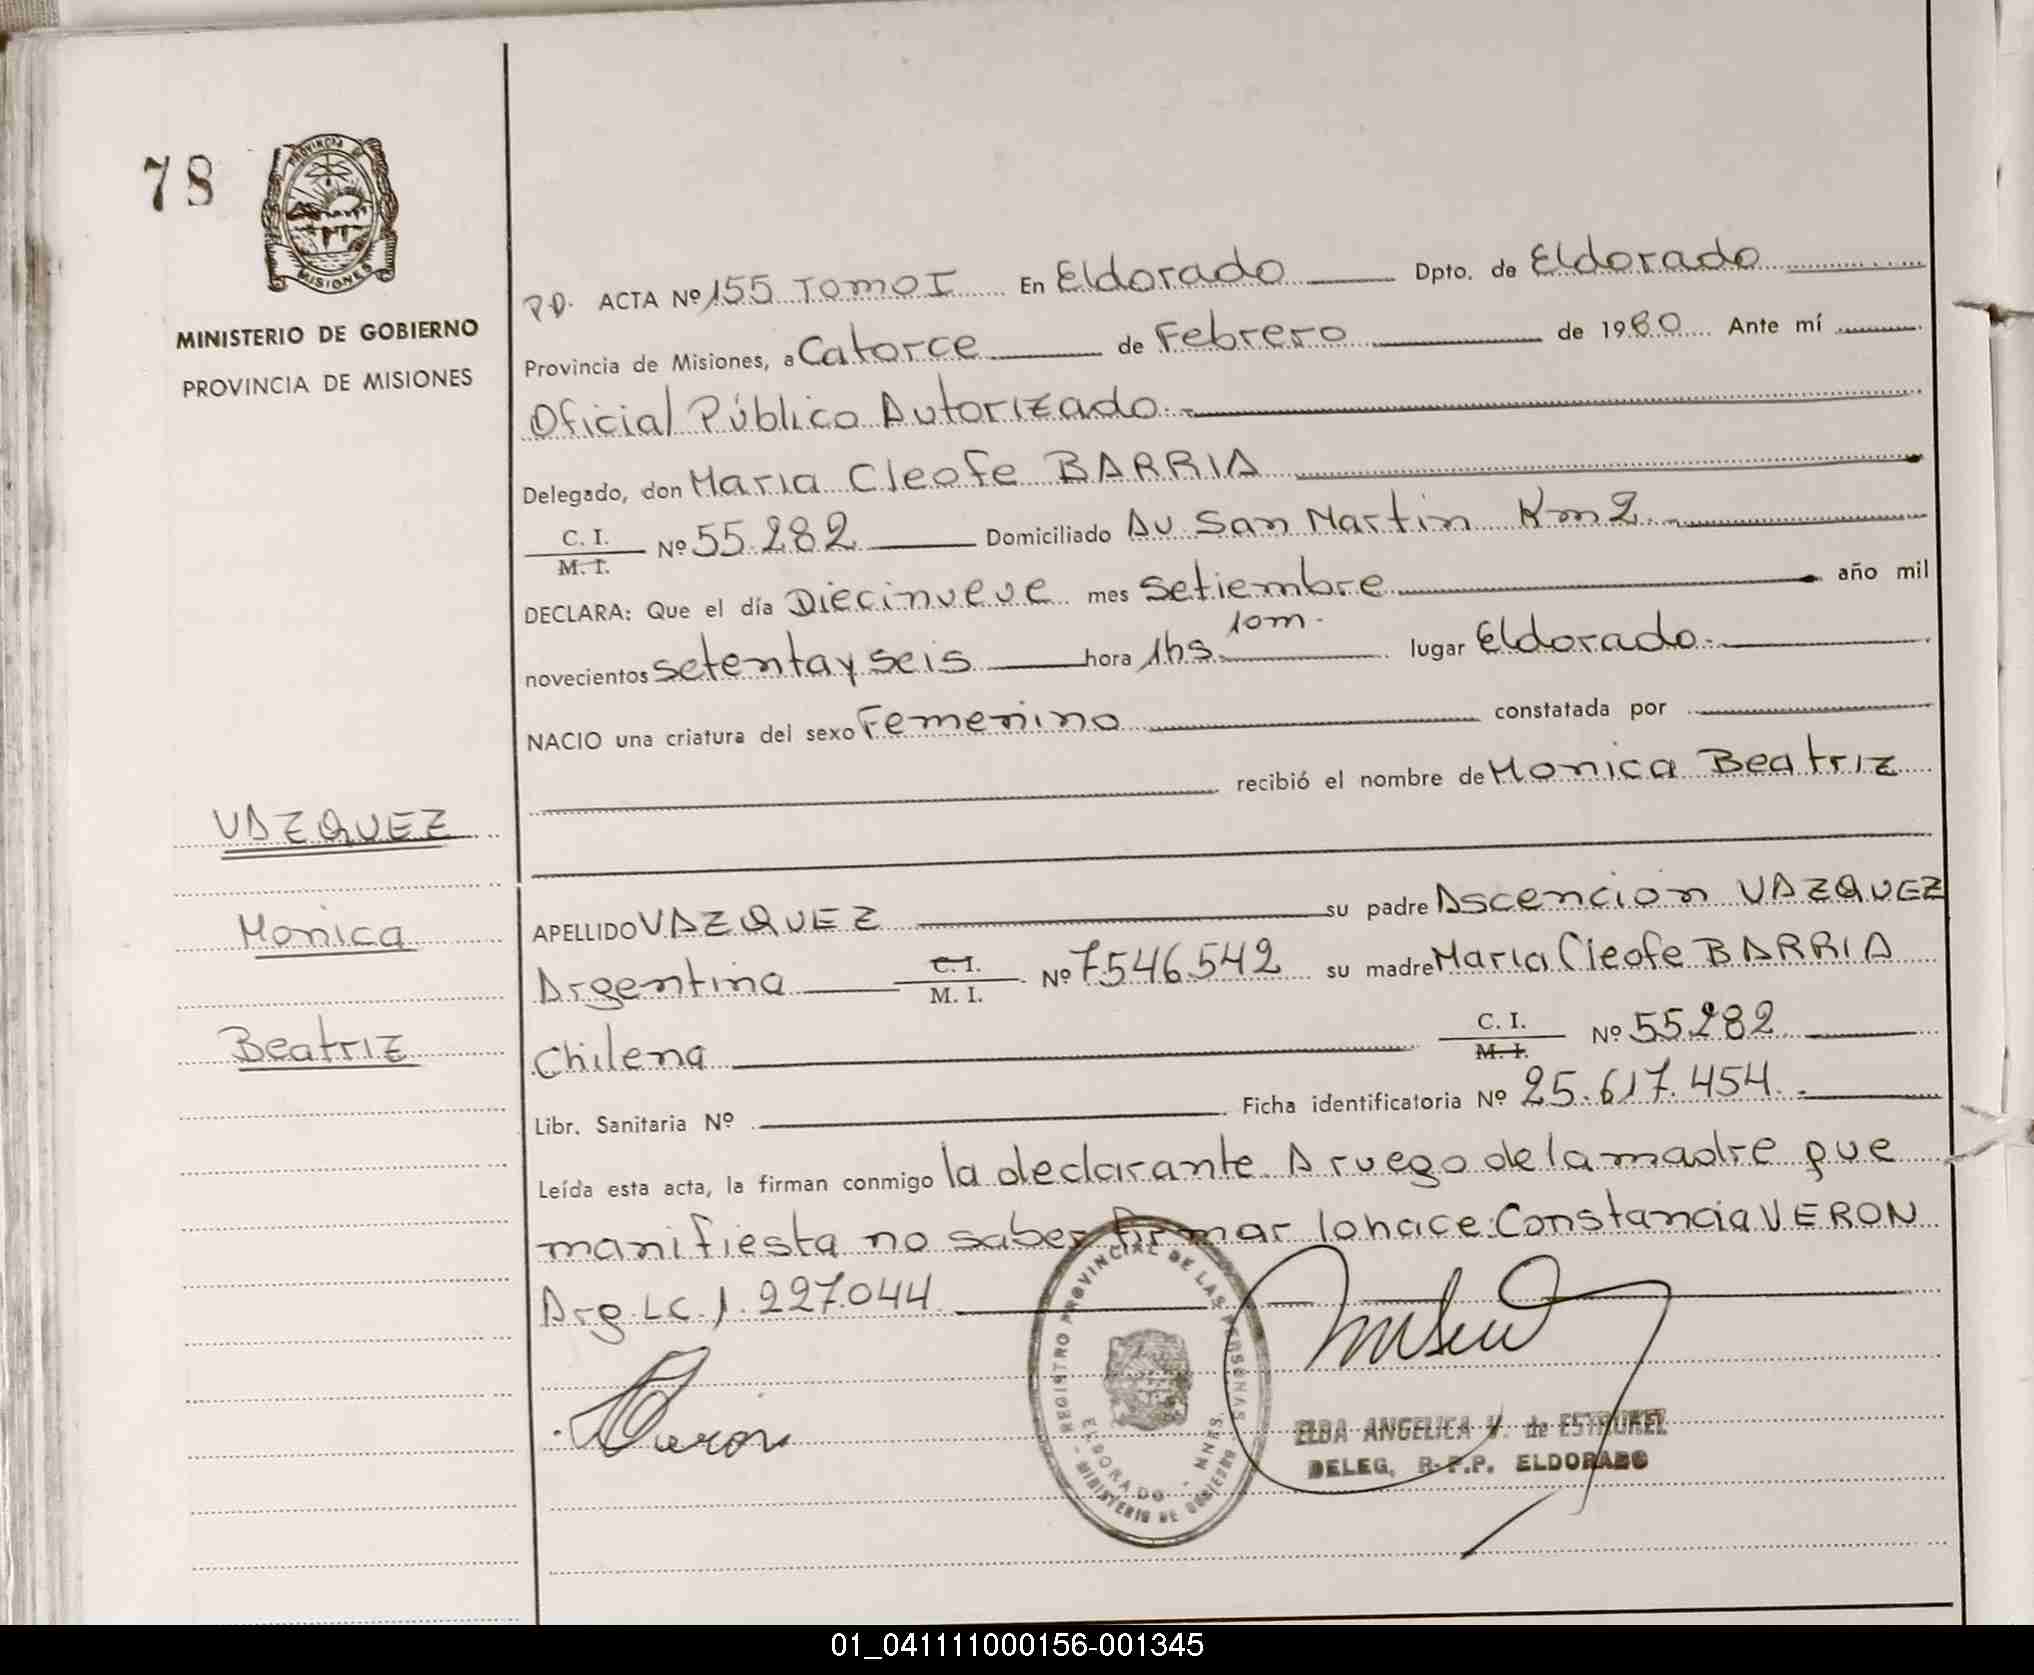 78
PROVINCIA DE
MISIONES
MINISTERIO DE GOBIERNO
PROVINCIA DE MISIONES
P.D. ACTA Nº 155 Tomo I En Eldorado Dpto. de Eldorado
Provincia de Misiones, a Catorce de Febrero de 1980 Ante mí
Oficial Público Autorizado.-
Delegado, don Maria Cleofe BARRIA
C. I. / M. I. Nº 55.282 Domiciliado Av San Martin Km 2.
DECLARA: Que el día Diecinueve mes Setiembre año mil
novecientos setenta y seis hora 1hs 10m. lugar Eldorado.
NACIO una criatura del sexo Femenino constatada por
recibió el nombre de Monica Beatriz
VAZQUEZ
Monica
Beatriz
APELLIDO VAZQUEZ su padre Ascencion VAZQUEZ
Argentina C. I. / M. I. Nº 7.546.542 su madre Maria Cleofe BARRIA
Chilena C. I. / M. I. Nº 55.282
Libr. Sanitaria Nº Ficha identificatoria Nº 25.617.454.-
Leída esta acta, la firman conmigo la declarante. A ruego de la madre que
manifiesta no saber firmar lo hace: Constancia VERON
Arg. LC. 1.227.044
Veron
REGISTRO PROVINCIAL DE LAS PERSONAS
ELDORADO - MNNS.
- MINISTERIO DE GOBIERNO
ELBA ANGELICA V. de ESTRUKEL
DELEG. R.P.P. ELDORADO
01_041111000156-001345